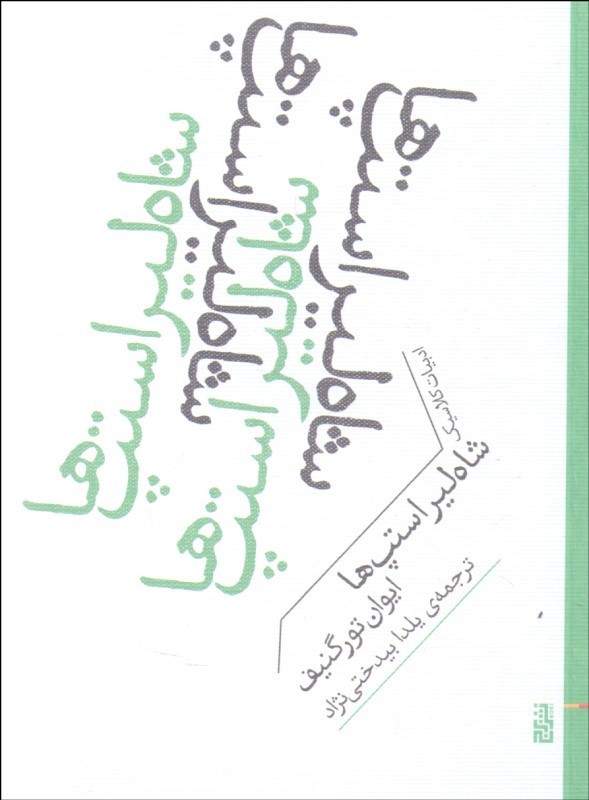 شاه لیر استپ‌ها
شاه لیر استپ‌ها
شاه لیر استپ‌ها
شاه لیر استپ‌ها
ادبیات کلاسیک
شاه لیر استپ‌ها
ایوان تورگنیف
ترجمه‌ی یلدا بیدختی‌نژاد